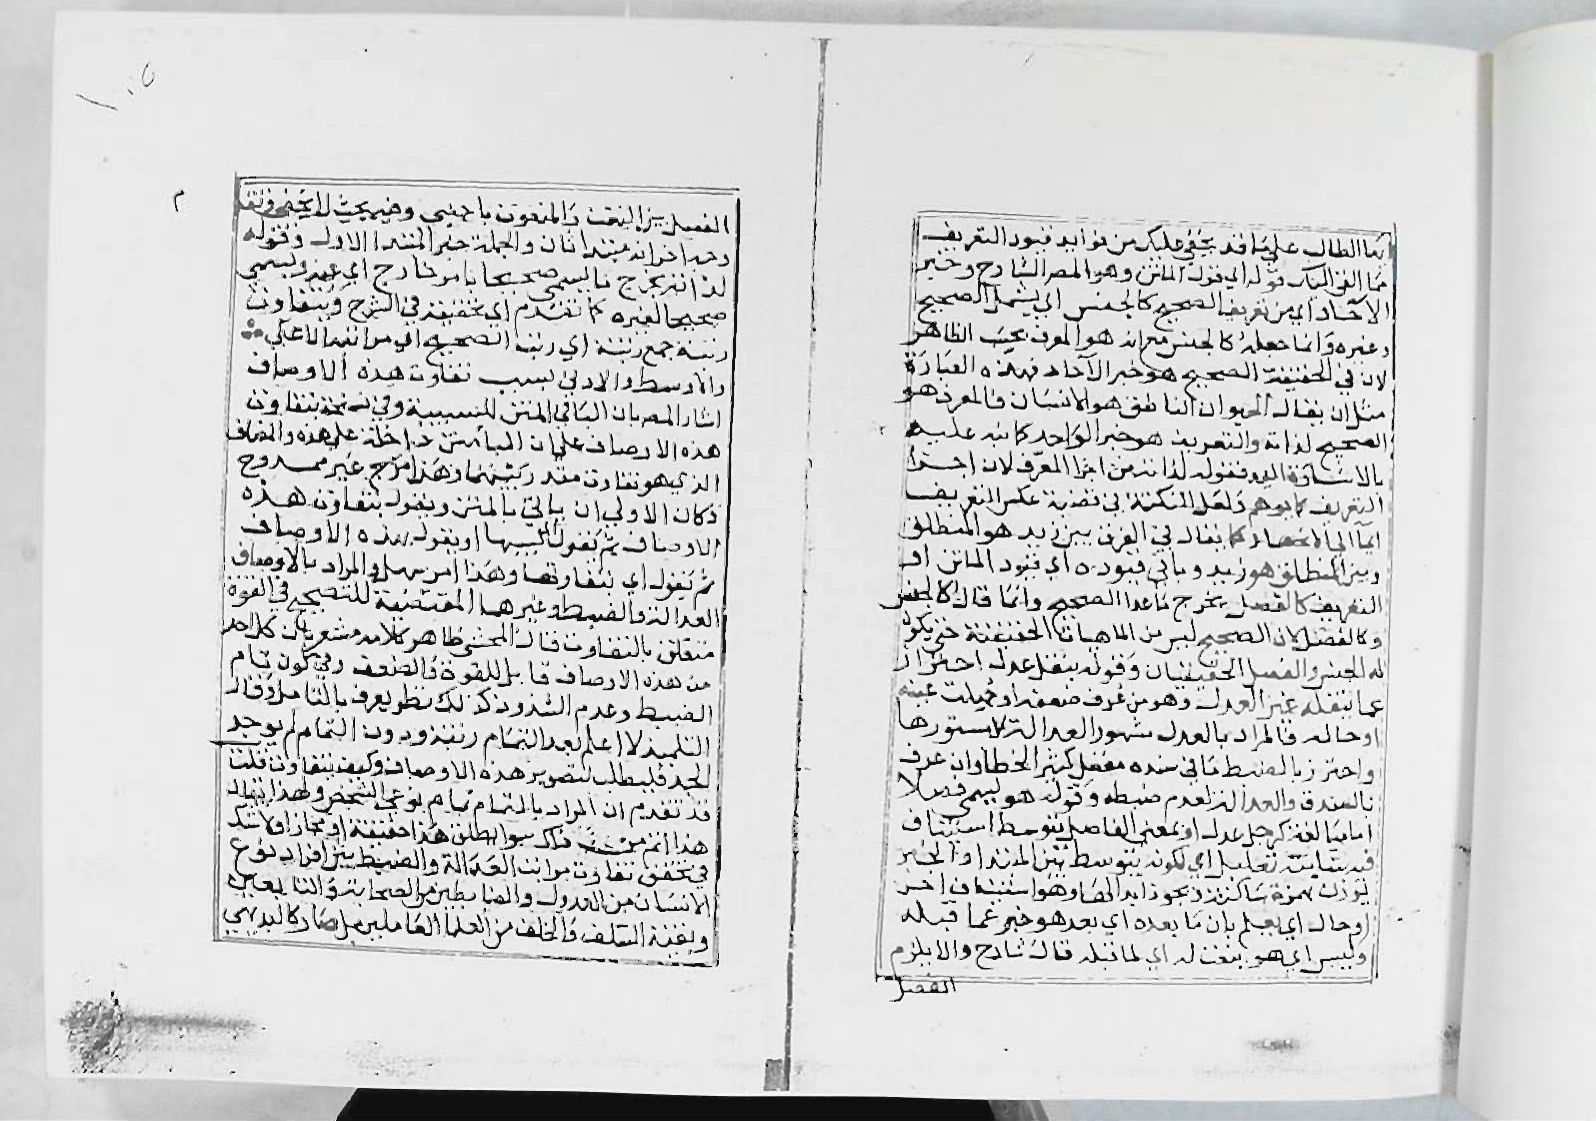 ايها الطالب علي ما قد يخفي عليك من فوائد قيود التعريف
قوله اي قول الماتن وهو المص الشارح وخبر
الآحاد اي من تعريف الصحيح كالجنس اي يشمل الصحيح
وغيره وانما جعله كالجنس مع انه هو المعرف بحسب الظاهر
لان في الحقيقة الصحيح هو خبر الآحاد فهذه العبارة
مثل ان يقال الحيوان الناطق هو الانسان فالمعرف هو
الصحيح لذاته والتعريف هو خبر الواحد كما نبه عليه
بالاشارة اليه فقوله لذاته من اجزا المعرف لا من اجزا
التعريف كما يوهم ولعل النكتة في قضية عكس التعريف
ايما الي الانحصار كما يقال في الفرق بين زيد هو المنطلق
وبين المنطلق هو زيد وباقي قيوده اي قيود الماتن او
التعريف كالفصل يخرج ما عدا الصحيح وانما قال كالجنس
وكالفصل لان الصحيح ليس من الماهيات الحقيقية حتي يكون
له الجنس والفصل الحقيقيان وقوله بنقل عدل احتراز
عما ينقله غير العدل وهو من عرف ضعفه او جهلت عينه
او حاله فالمراد بالعدل مشهور العدالة لا مستورها
واحترز بالضبط ما في سنده مغفل كثير الخطا وان عرف
بالصدق والعدالة لعدم ضبطه وقوله هو يسمي فصلا
اما مبالغة كرجل عدل او بمعني الفاصل يتوسط استيناف
فيه شايبة تعليل اي لكونه يتوسط بين المبتدا والخبر
يؤذن بهمزة ساكنة ويجوز ابدالها وهو استيناف اخر
او حال اي يعلم بان ما بعده اي بعد هو خبر عما قبله
وليس اي هو بنعت له اي لما قبله قال شارح والا يلزم
الفصل
الفصل بين النعت والمنعوت باجنبي وفيه بحث لا يخفي وثقد
وجه اخر انه مبتدا ثان والجملة خبر المبتدا الاول وقوله
لذاته يخرج ما يسمي صحيحا بامر خارج اي عنه ويسمي
صحيحا لغيره كما تقدم اي تحقيقه في الشرح وبتفاوت
رتبه جمع رتبة اي رتب الصحيح اي مراتبه الاعلي
والاوسط والادني بسبب تفاوت هذه الاوصاف
اشار المص بان البا في المتن للسببية وفي نسخة بتفاوت
هذه الاوصاف علي ان المباينة داخلة علي هذه والمضاف
الذي هو تفاوت مقدر بينهما وهذا مزج غير ممدوح
فكان الاولي ان ياتي بالمتن ويقول بتفاوت هذه
الاوصاف ثم يقول بسببها او يقول بهذه الاوصاف
ثم يقول اي بتفاوتها وهذا امر سهل والمراد بالاوصاف
العدالة والضبط وغيرهما المقتضية للتصحيح في القوة
متعلق بالتفاوت قال المحشي ظاهر كلامه مشعر بان كلا احد
من هذه الاوصاف قابل للقوة والضعف وفي كون تمام
الضبط وعدم الشذوذ كذلك نظر يعرف بالتامل وقال
التلميذ لا اعلم بعد التمام رتبة ودون التمام لم يوجد
الحد فليطلب لتصوير هذه الاوصاف وكيف يتفاوت قلت
قد تقدم ان المراد بالتمام تمام نوعي الشخص ولهذا يقال
هذا اتم من ذاك سوا يطلق هذا حقيقة او مجازا ولا شك
في تحقق تفاوت مراتب العدالة والضبط بين افراد نوع
الانسان من العدول والضابطين من الصحابة والتابعين
وبقية السلف والخلف من العلما العاملين بل صار كالبديهي